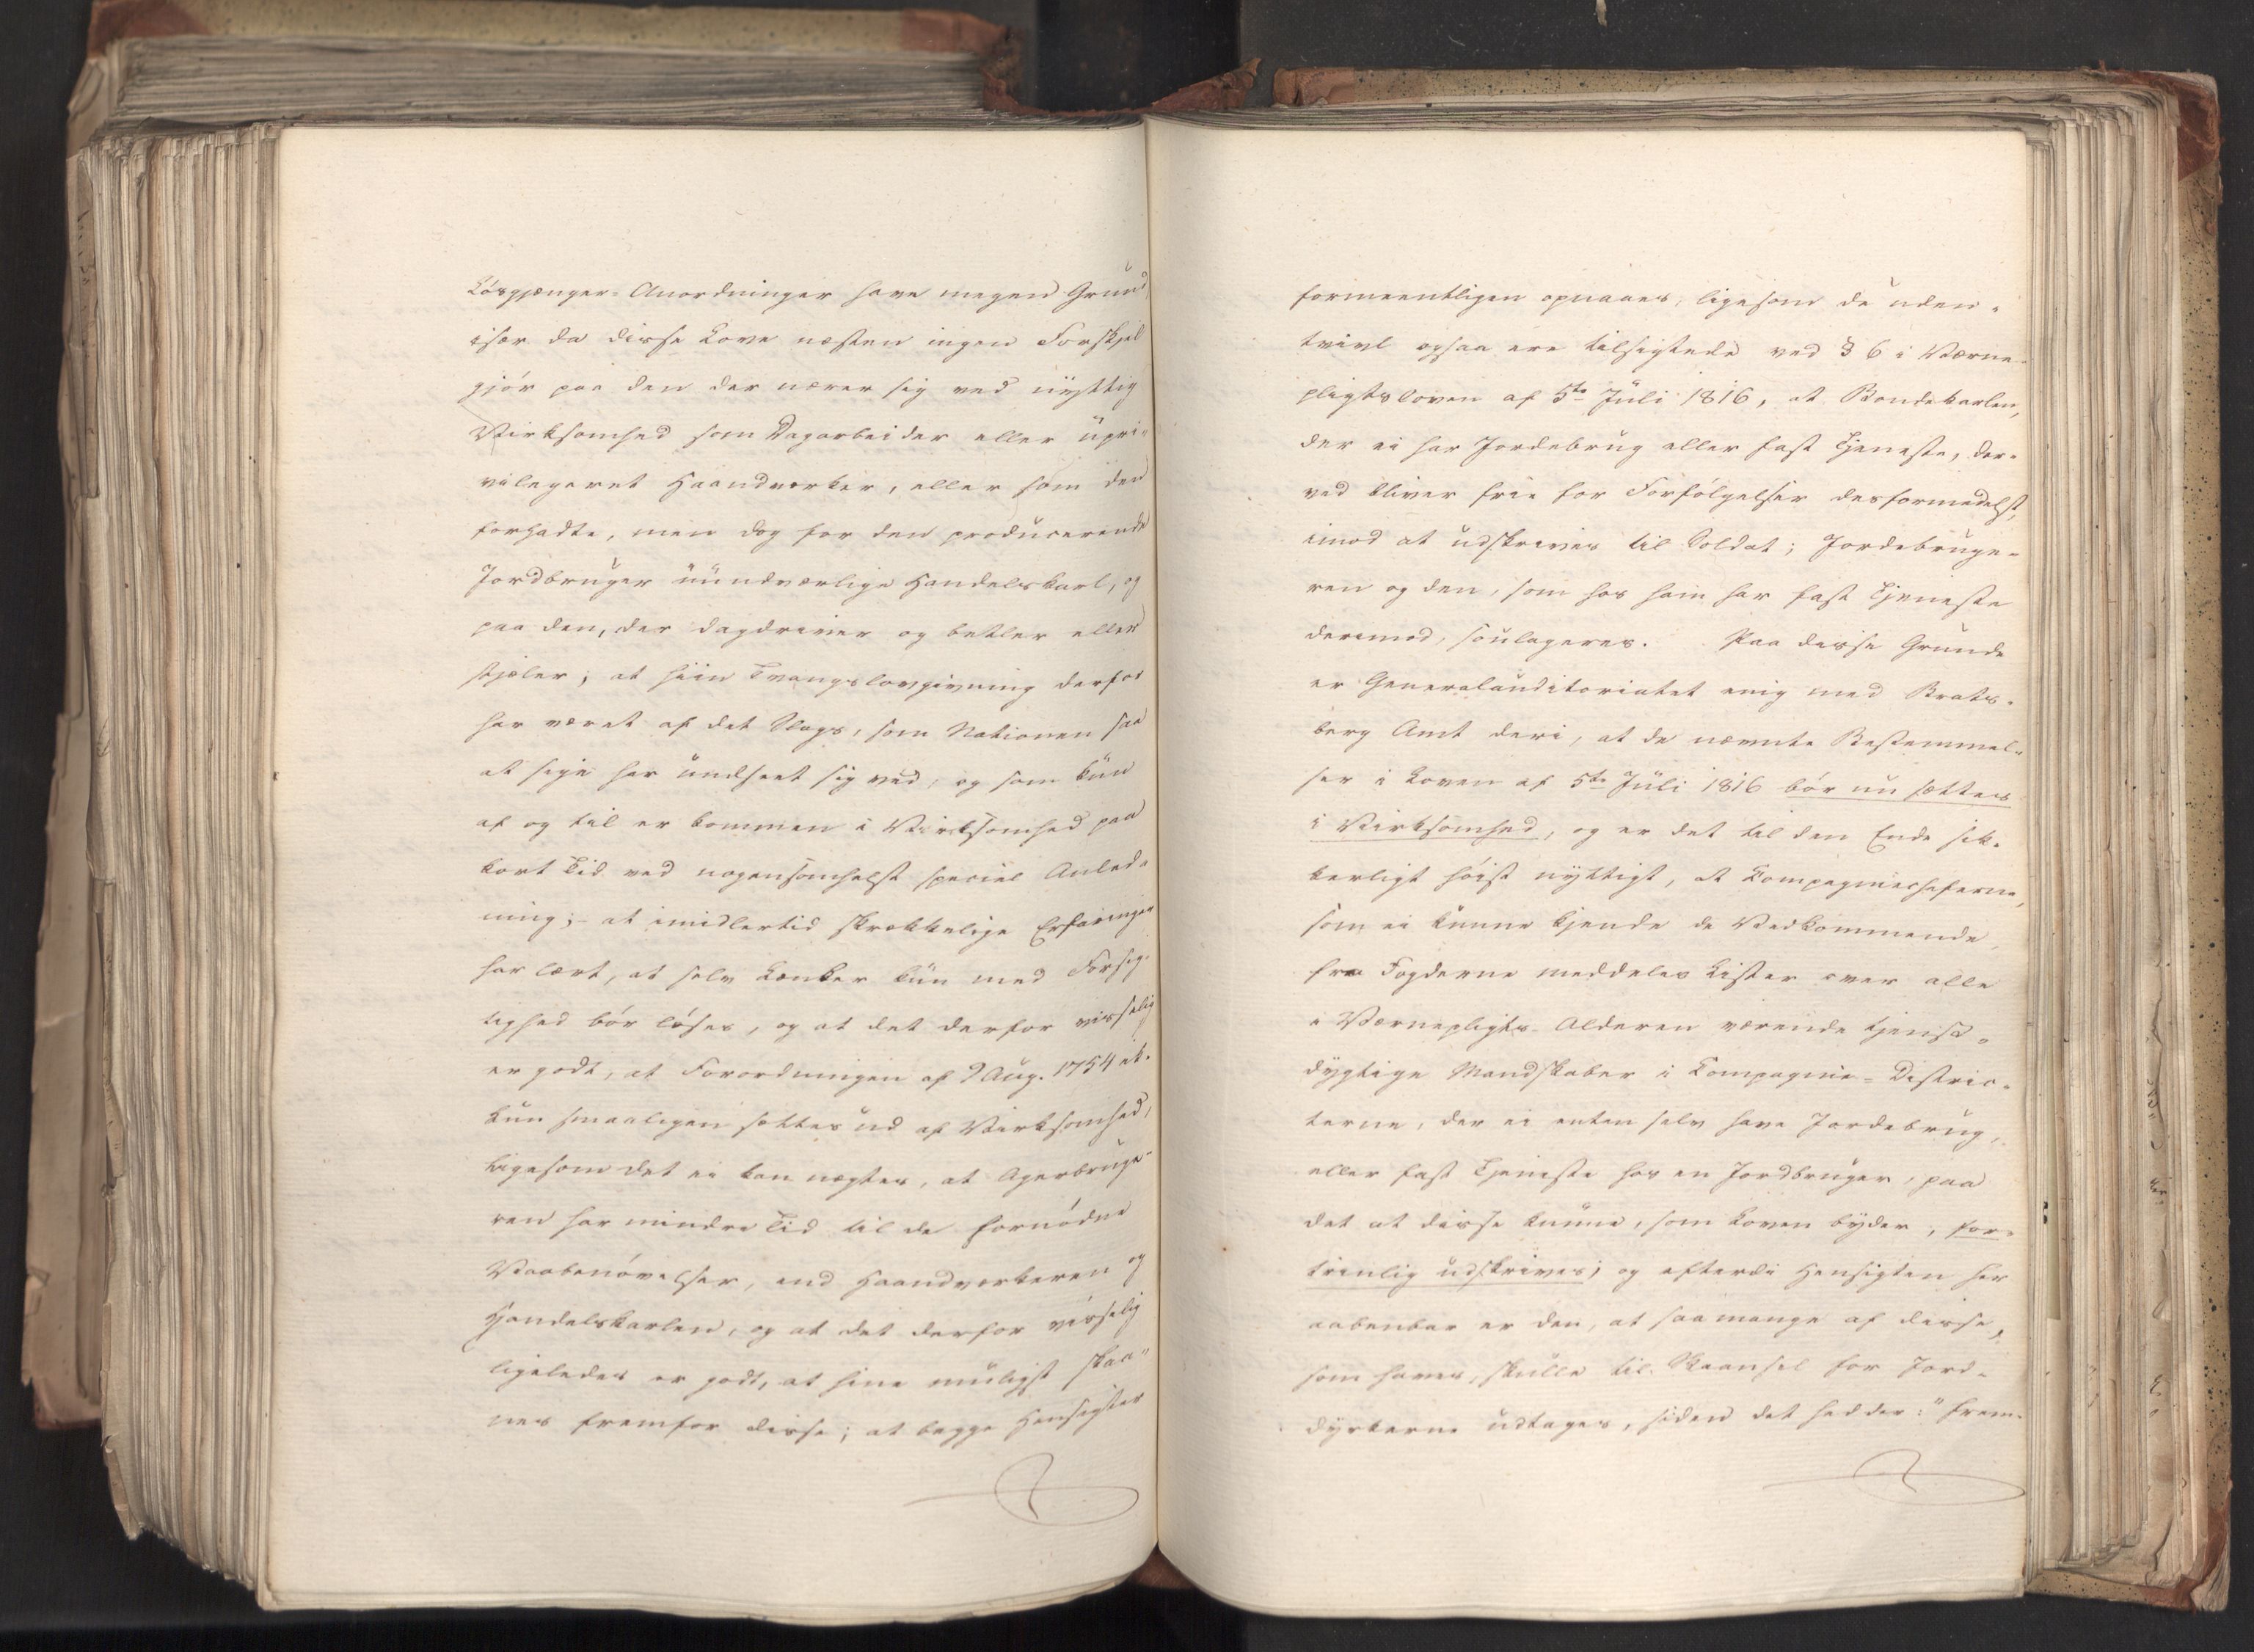 Løsgjænger-Anordninger have megen Grund,
især da disse Love næsten ingen Forskjel
gjør paa den der nærer sig ved nyttig
Virksomhed som Dagarbeider eller upri-
vilegeret Haandværker, eller som den
forhadte, men dog for den producerende
Jordbruger uundværlige Handelskarl, og
paa den, der dagdriver og betler eller
stjæler; at hiin Tvangslovgivning derfor
har været af det Slags, som Nationen saa
at sige har undseet sig ved, og som kun
af og til er kommen i Virksomhed paa
kort Tid ved nogensomhelst speciel Anled-
ning; - at imidlertid skrækkelige Erfaringer
har lært, at selv Lænker kun med Forsig-
tighed bør løses, og at det derfor visselig
er godt, at Forordningen af 9 Aug. 1754 ik-
kun smaaligen sættes ud af Virksomhed,
ligesom det ei kan nægtes, at Agerbruge-
ren har mindre Tid til de fornødne
Vaabenøvelser, end Haandværkeren og
Handelskarlen, og at det derfor visselig
ligeledes er godt, at hine muligst skaa-
nes fremfor disse; at begge Hensigter
formeentligen opnaaes, ligesom de uden-
tvivl ogsaa ere tilsigtede ved § 6 i Værne-
pligtsloven af 5te Juli 1816, at Bondekarlen,
der ei har Jordebrug eller fast Tjeneste, der-
ved bliver frie for Forfølgelser desformedelst,
imod at udskrives til Soldat; Jordebruge-
ren og den, som hos ham har fast Tjeneste
derimod, soulageres. Paa disse Grunde
er Generalauditoriatet enig med Brats-
berg Amt deri, at de nævnte Bestemmel-
ser i Loven af 5te Juli 1816 bør nu sættes
i Virksomhed, og er det til den Ende sik-
kerligt høist nyttigt, at Kompagniecheferne,
som ei kunne kjende de Vedkommende,
fra Fogderne meddeles Lister over alle
i Værnepligts-Alderen værende tjenst-
dygtige Mandskaber i Kompagnie-Distric-
terne, der ei enten selv have Jordebrug,
eller fast Tjeneste hos en Jordbruger, paa
det at disse kunne, som Loven byder, for-
trinlig udskrives; og efterdi Hensigten her
aabenbar er den, at saa mange af disse,
som haves, skulle til Skaansel for Jord-
dyrkerne udtages, siden det hedder: "frem-